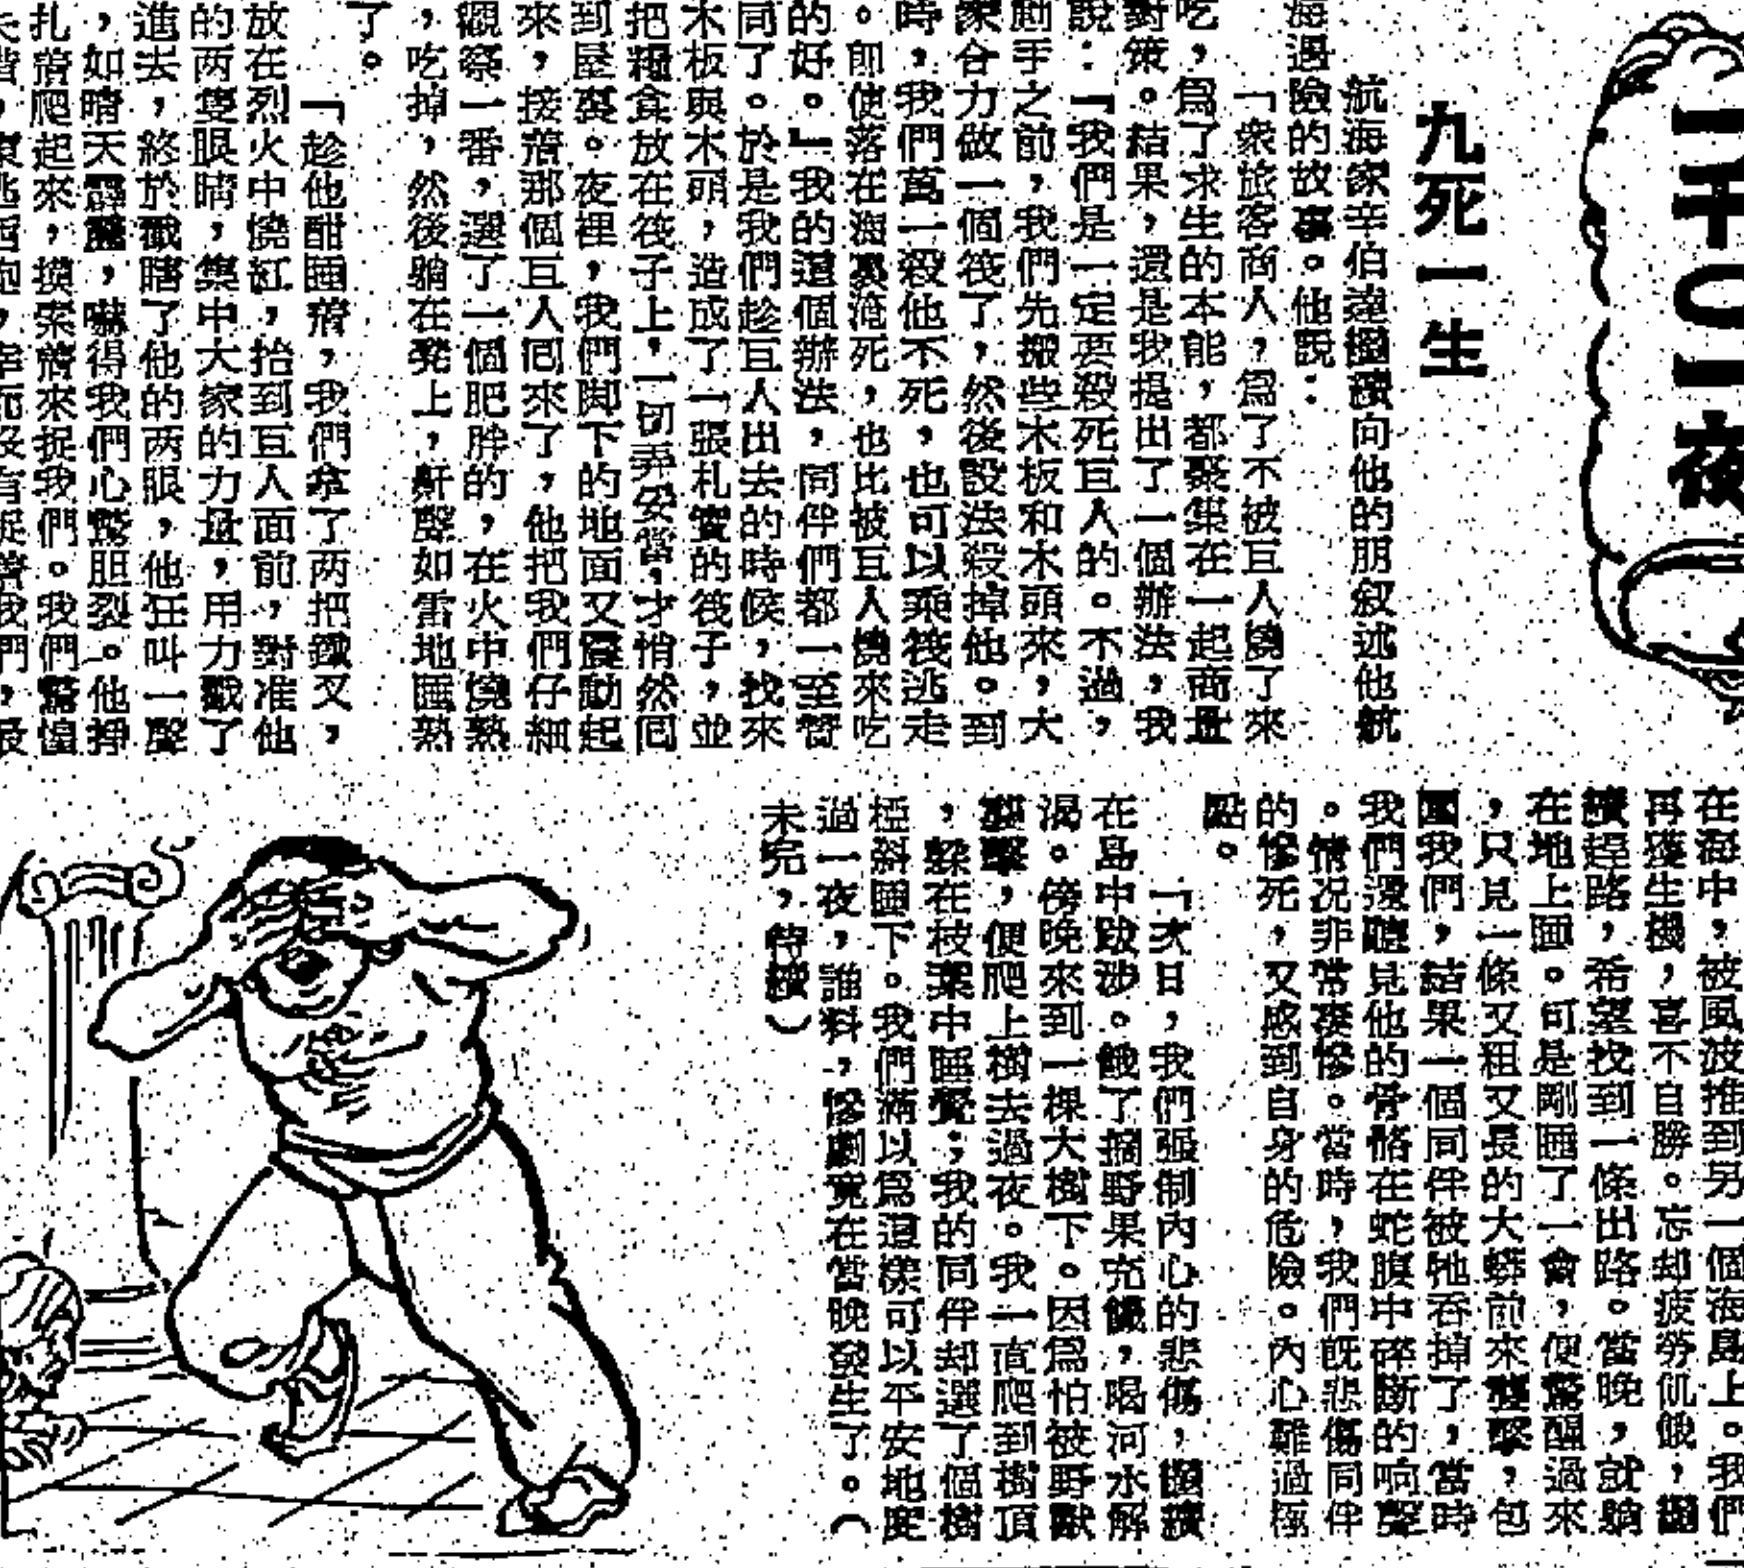 一千〇一夜
九死一生
航海家辛伯達繼續向他的朋叙述他航
海遇險的故事。他説：
「衆旅客商人，爲了不被亘人燒了來
吃，爲了求生的本能，都聚集在一起商量
對策。結果，還是我提出了一個辦法，我
説：「我們是一定要殺死亘人的。不過，
手之前，我們先搬些木板和木頭來，大
家合力做一個筏了，然後設法殺掉他。到
時，我們萬一殺他不死，也可以乘筏逃走
。卽使落在海裏淹死，也比被亘人燒來吃
的好。」我的這個辦法，同伴們都一至贊
同了。於是我們趁亘人出去的時候，找來
木板與木頭，造成了一張札實的筏子，並
把糧食放在筏子上，一切弄安當，才悄然囘
到屋裏。夜裡，我們脚下的地面又震動起
來，接着那個亘人囘來了，他把我們仔細
觀察一番，選了一個肥胖的，在火中燒熟
，吃掉，然後躺在凳上，鼾聲如雷地睡熟
了。
「趁他酣睡着，我們拿了两把鐵叉，
放在烈火中燒紅，抬到亘人面前，對准他
的两隻眼睛，集中大家的力量，用力戳了
進去，終於戳瞎了他的两眼，他狂叫一聲
，如晴天霹靂，嚇得我們心驚胆裂。他掙
扎着爬起來，摸索着來捉我們。我們驚惶
在海中，被風波推到另一個海島上。我們
再獲生機，喜不自勝。忘却疲勞飢餓，繼
續趕路，希望找到一條出路。當晚，就躺
在地上睡。可是剛睡了一會，便驚醒過來
，只見一條又粗又長的大蟒前來襲擊，包
圍我們，結果一個同伴被牠吞掉了，當時
我們還聽見他的骨骼在蛇腹中碎斷的响聲
。情况非常凄慘。當時，我們既悲傷同伴
的慘死，又感到自身的危險。內心難過極
點。
「次日，我們强制內心的悲傷，繼續
在島中跋涉。餓了摘野果充饑，喝河水解
渴。傍晚來到一棵大樹下。因爲怕被野獸
襲擊，便爬上樹去過夜。我一直爬到樹頂
，躲在枝葉中睡覺；我的同伴却選了個樹
椏斜睡下。我們滿以爲這樣可以平安地度
過一夜，誰料，慘劇竟在當晚發生了。（
未完，待續）